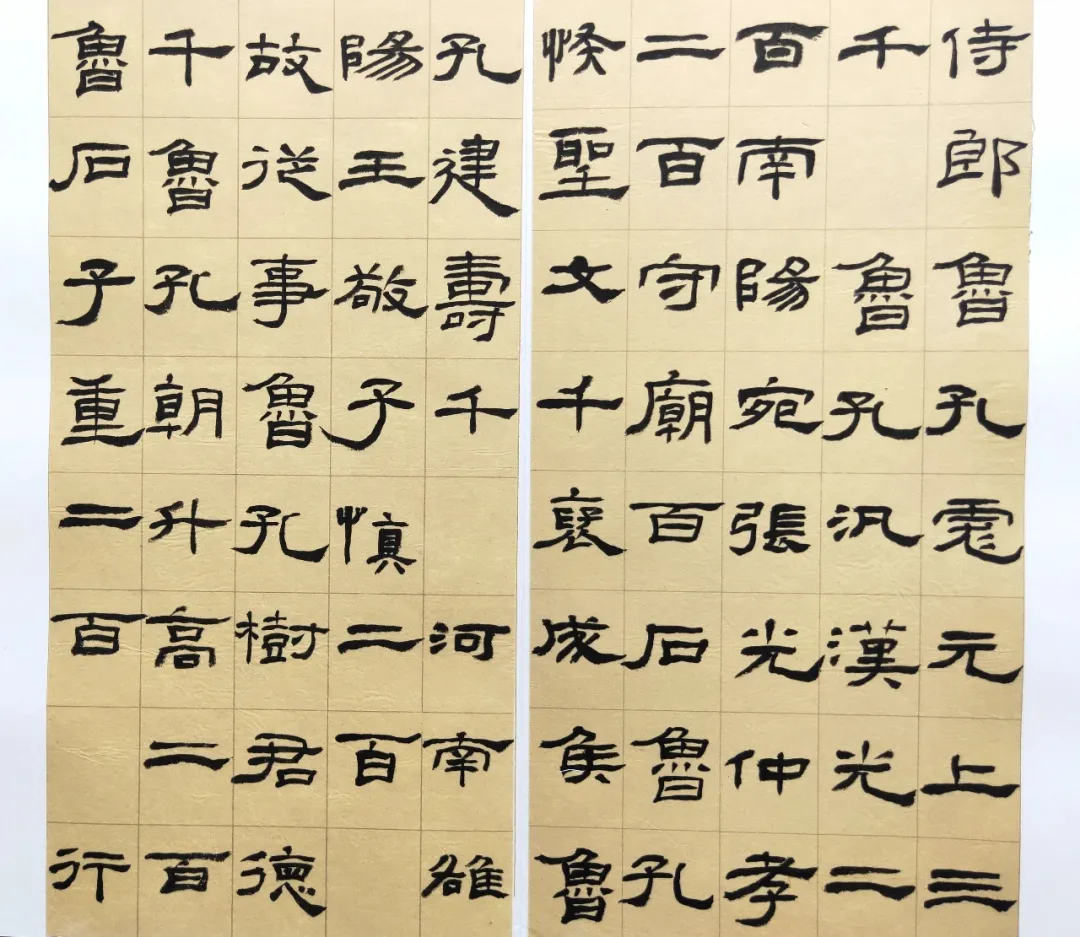 侍郎魯孔彪元上三
千 魯孔汎漢光二
百南陽宛張光仲孝
二百守廟百石魯孔
恢聖文千褒成侯魯
孔建壽千 河南雒
陽王敬子慎二百
故從事魯孔樹君德
千魯孔朝升高二百
魯石子重二百 行